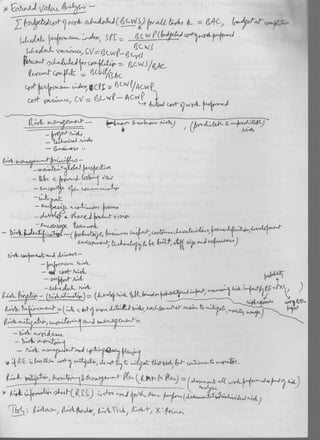 * Earned Value Analysis -
∑ budgeted cost of work scheduled (BCWS) for all tasks k = BAC, budget at completion
Schedule performance index, SPI = BCWP (budgeted cost of work performed)
BCWS
Schedule variance, SV = BCWP - BCWS
Percent scheduled for completion = BCWS/BAC
Percent complete = BCWP/BAC
Cost performance index, CPI = BCWP/ACWP
cost variance, CV = BCWP - ACWP
→ actual cost of work performed
Risk management -
- project risks
- technical risks
- Business "
(predictable & unpredictable)
risks
Risk management principles -
- maintain global perspective
- take a forward looking view
- encourage open communication
- integrate
- emphasize continuous process
- develop a shared product vision
- encourage teamwork
- Risk Identification - (product size, business impact, customer characteristics, process definition, development
environment, technology to be built, staff size and experience)
Risk components and drivers -
- performance risk
- cost risk
- support risk
- schedule risk
probability
Risk Projection - (Risk estimation) =
risk exposure
Risk Refinement =
Risk mitigation, monitoring and management =
- risk avoidance
- risk monitoring
- risk management and contingency planning
* If RE is less than cost of mitigation, do not try to mitigate that risk but continue to monitor.
Risk mitigation, monitoring & management Plan (RMMM Plan) = (document all work performed as part of risk)
analysis
* Risk information sheet (RIS) is also used for the same purpose (document individual risk)
Tools: Riskman, Risk Radar, RiskTrak, Risk+, X:Primer